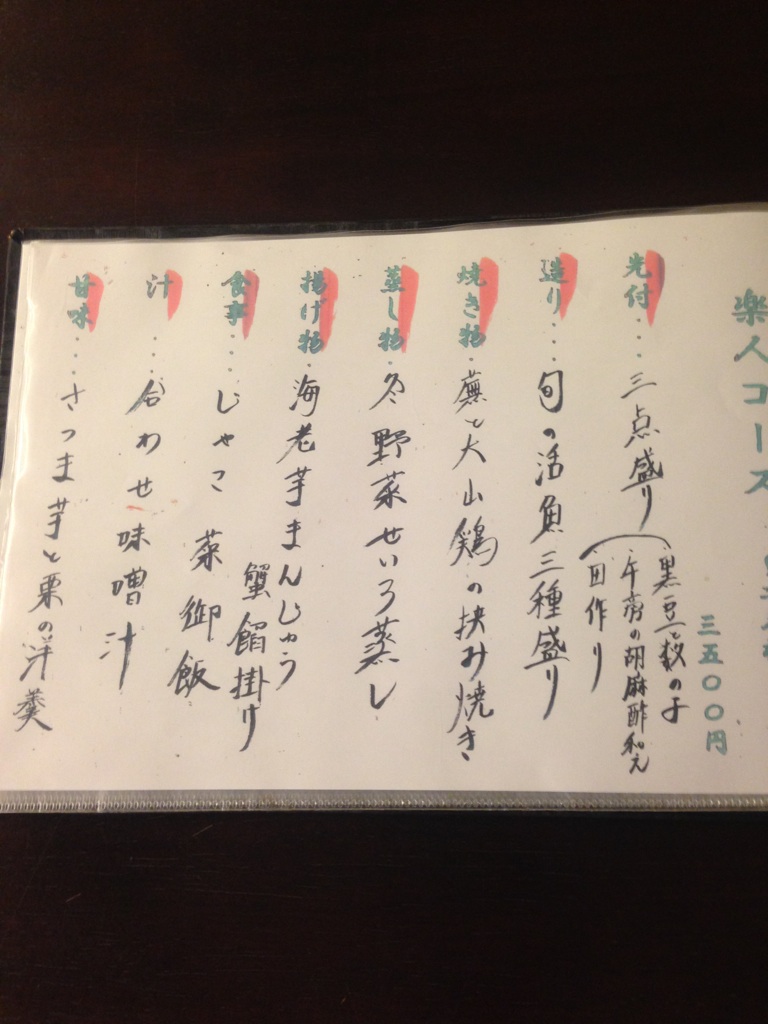 楽人コース
三五〇〇円
先付・・・・三点盛り
黒豆と数の子
牛蒡の胡麻酢和え
田作り
造り・・・・旬の活魚三種盛り
焼き物・蕪と大山鶏の挟み焼き
蒸し物・冬野菜せいろ蒸し
揚げ物・海老芋まんじゅう
蟹餡掛け
食事・・・・じゃこ菜御飯
汁・・・・合わせ味噌汁
甘味・・・・さつま芋と栗の洋羹